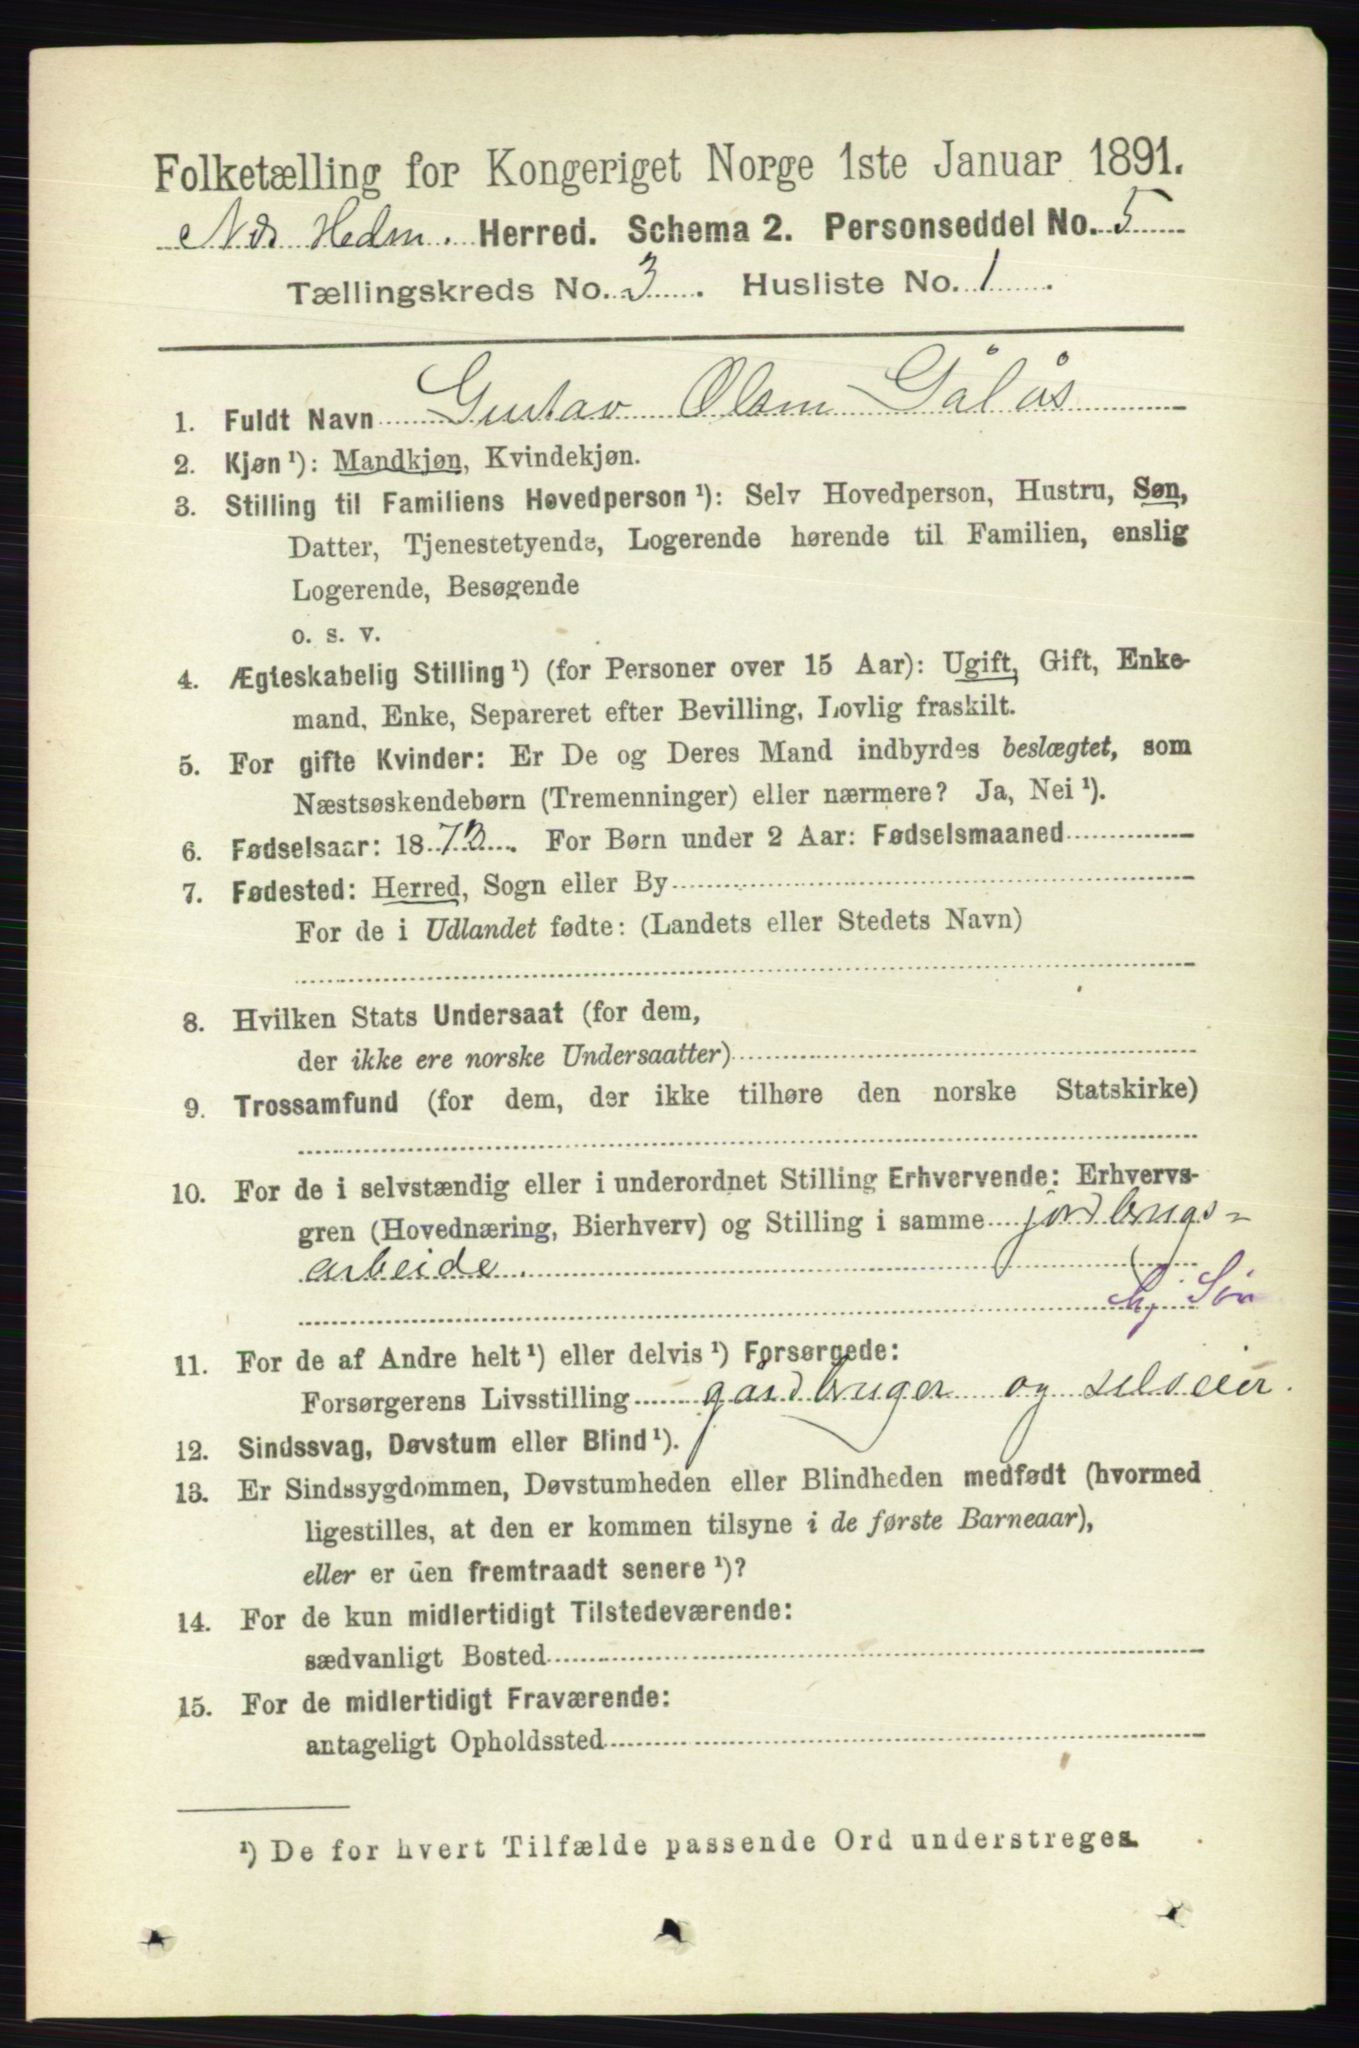 Folketælling for Kongeriget Norge 1ste Januar 1891.
Nds Hedm. Herred. Schema 2. Personseddel No. 5
Tællingskreds No. 3. Husliste No. 1.
1. Fuldt Navn Gustav Olsen Gålås
2. Kjøn ¹): Mandkjøn, Kvindekjøn.
3. Stilling til Familiens Hovedperson ¹): Selv Hovedperson, Hustru, Søn,
Datter, Tjenestetyende, Logerende hørende til Familien, enslig
Logerende, Besøgende
o. s. v.
4. Ægteskabelig Stilling ¹) (for Personer over 15 Aar): Ugift, Gift, Enke-
mand, Enke, Separeret efter Bevilling, Lovlig fraskilt.
5. For gifte Kvinder: Er De og Deres Mand indbyrdes beslægtet, som
Næstsøskendebørn (Tremenninger) eller nærmere? Ja, Nei ¹).
6. Fødselsaar: 1873. For Børn under 2 Aar: Fødselsmaaned
7. Fødested: Herred, Sogn eller By
For de i Udlandet fødte: (Landets eller Stedets Navn)
8. Hvilken Stats Undersaat (for dem,
der ikke ere norske Undersaatter)
9. Trossamfund (for dem, der ikke tilhøre den norske Statskirke)
10. For de i selvstændig eller i underordnet Stilling Erhvervende: Erhvervs-
gren (Hovednæring, Bierhverv) og Stilling i samme jordbrugs-
arbeide.
hj. Søn
11. For de af Andre helt ¹) eller delvis ¹) Forsørgede:
Forsørgerens Livsstilling gårdbruger og selveier.
12. Sindssvag, Døvstum eller Blind ¹).
13. Er Sindssygdommen, Døvstumheden eller Blindheden medfødt (hvormed
ligestilles, at den er kommen tilsyne i de første Barneaar),
eller er den fremtraadt senere ¹)?
14. For de kun midlertidigt Tilstedeværende:
sædvanligt Bosted
15. For de midlertidigt Fraværende:
antageligt Opholdssted
¹) De for hvert Tilfælde passende Ord understreges.